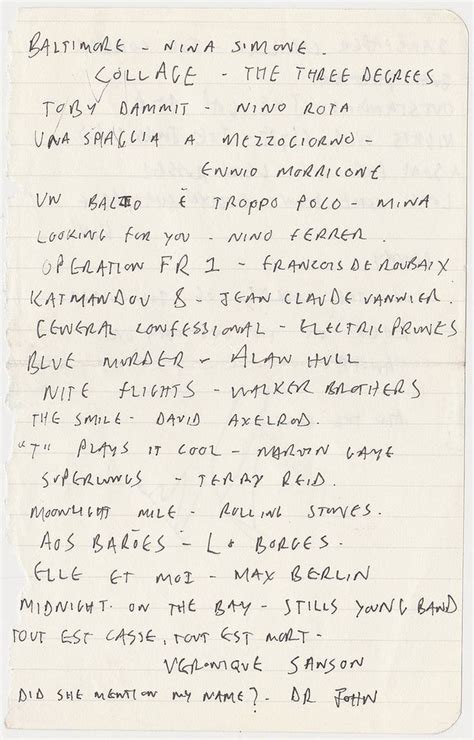 BALTIMORE - NINA SIMONE.
COLLAGE - THE THREE DEGREES
TOBY DAMMIT - NINO ROTA
UNA SPAGGIA A MEZZOGIORNO -
ENNIO MORRICONE
UN BACIO È TROPPO POCO - MINA
LOOKING FOR YOU - NINO FERRER.
OPERATION FR 1 - FRANCOIS DE ROUBAIX
KATMANDOU 8 - JEAN CLAUDE VANNIER.
GENERAL CONFESSIONAL - ELECTRIC PRUNES
BLUE MURDER - ALAN HULL
NITE FLIGHTS - WALKER BROTHERS
THE SMILE - DAVID AXELROD.
"T" PLAYS IT COOL - MARVIN GAYE
SUPERLUNGS - TERRY REID.
MOONLIGHT MILE - ROLLING STONES.
AOS BARÕES - Lo BORGES.
ELLE ET MOI - MAX BERLIN
MIDNIGHT. ON THE BAY - STILLS YOUNG BAND
TOUT EST CASSE, TOUT EST MORT -
VERONIQUE SANSON
DID SHE MENTION MY NAME? - DR JOHN